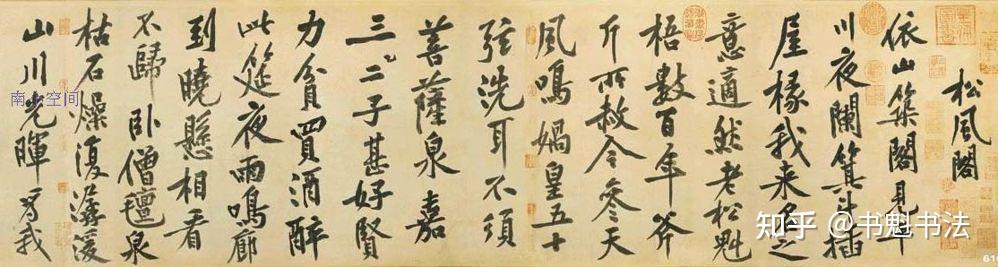 松風閣
依山築閣見平
川夜闌箕斗插
屋椽我來名之
意適然老松魁
梧數百年斧
斤所赦今參天
風鳴媧皇五十
弦洗耳不須
菩薩泉嘉
三二子甚好賢
力貧買酒醉
此筵夜雨鳴廊
到曉懸相看
不歸臥僧氈泉
枯石燥復潺湲
山川光暉爲我
知乎 @书魁书法